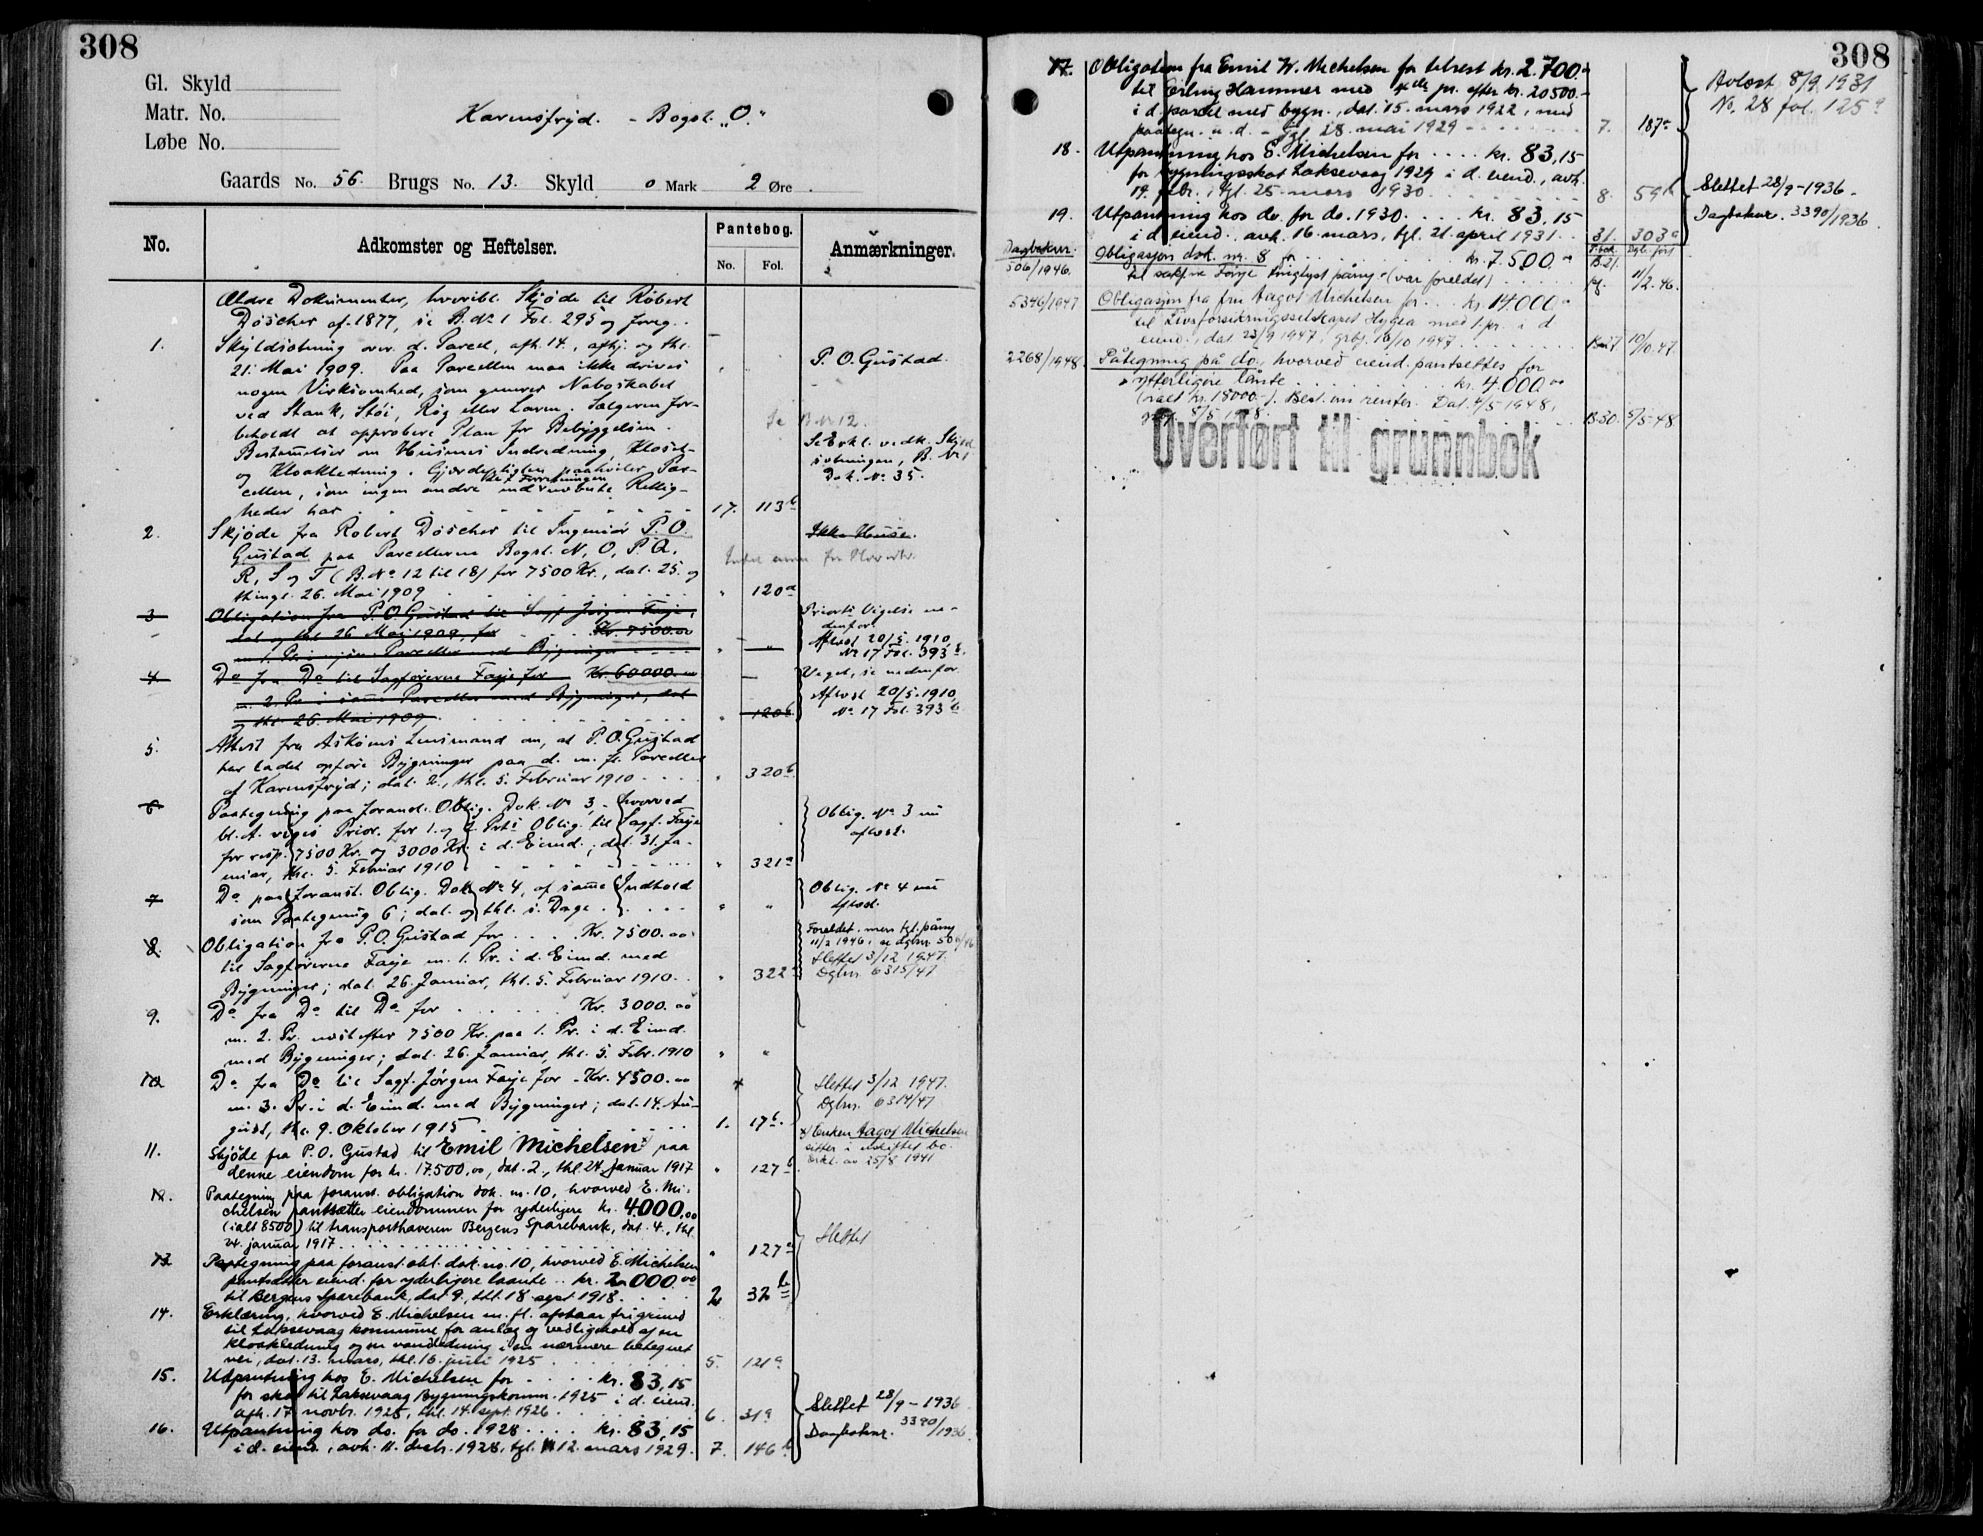 308
Gl. Skyld
Matr. No.
Løbe No.
Karensfryd. - Bogst. „O."
Gaards No. 56. Brugs No. 13. Skyld 0 Mark 2 Øre.
No. Adkomster og Heftelser. Pantebog. No. Fol. Anmærkninger.
Ældre Dokumenter, hvoribl. Skjøde til Robert
Døscher af 1877, se B. No 1 Fol. 295 og foreg.
1. Skyldsætning over d. Parcel, afh. 14., afhj. og thl.
21. Mai 1909. Paa Parcellen maa ikke drives
nogen Virksomhed, som generer Naboskabet
ved Stank, Støi, Røg eller Larm. Sælgeren for-
beholdt at approbere Plan for Bebyggelsen.
Bestemmelser om Husenes Indredning, Kloset-
og Kloakledning. Gjerdepligten paahviler Par-
cellen, som ingen andre end i Forretningen nævnte Rettig-
heder har 17. 113b
P. O. Gustad.
Se B. No 12.
Se Erkl. vedk. Skyld-
sætningen, B. No 1
Dok. No 35.
2. Skjøde fra Robert Døscher til Ingeniør P. O.
Gustad paa Parcellerne Bogst. N, O, P Q,
R, S og T (B. No 12 til 18) for 7500 Kr., dat. 25. og
thingl. 26. Mai 1909 " 120a
Ikke Huse.
3 Obligation fra P. O. Gustad til Sagf. Jørgen Faye,
dat. og thl. 26. Mai 1909, for Kr. 7500.00
m. 1. Pr. i Parceller med Bygninger " "
Priorts Vigelse ne-
denfor
Aflæst 20/5. 1910,
No 17 Fol. 393b.
4 Do fra Do til Sagførerne Faye for Kr. 60000.00
m. 2. Pr. i samme Parceller med Bygninger, dat.
og thl. 26. Mai 1909 " 120b
Veget, se nedenfor
Aflæst 20/5. 1910,
No 17 Fol. 393b.
5. Attest fra Askøens Lensmand om, at P. O. Gustad
har ladet opføre Bygninger paa d. m. fl. Parceller
af Karensfryd; dat. 2., thl. 5. Februar 1910 " 320b
6 Paategning paa foranst. Oblig. Dok. No 3, hvorved
bl. A. viges Prior. for 1. og 2. Prts Oblig. til Sagf. Faye
for resp. 7500 Kr. og 3000 Kr. i d. Eiend.; dat. 31. Ja-
nuar, thl. 5. Februar 1910 " 321a
Oblig. No 3 nu
aflæst.
7 Do paa foranst. Oblig. Dok. No 4, af samme Indhold
som Paategning 6; dat. og thl. s. Dage. " "
Oblig. No 4 nu
aflæst.
8. Obligation fra P. O. Gustad for Kr. 7500.00
til Sagførerne Faye m. 1. Pr. i d. Eiend. med
Bygninger; dat. 26. Januar, thl. 5. Februar 1910 " 322a
Foreldet, men tgl. påny
11/2 1946, se dgbnr. 506/46
Slettet 3/12 1947.
Dgbnr. 6315/47
9. Do fra Do til Do for Kr. 3000.00
m. 2. Pr. næst efter 7500 Kr. paa 1. Pr. i d. Eiend.
med Bygninger; dat. 26. Januar, thl. 5. Febr. 1910 " "
10 Do fra Do til Sagf. Jørgen Faye for Kr. 4500.00
m. 3. Pr. i d. Eiend. med Bygninger; dat. 14. Au-
gust, thl. 9. Oktober 1915 1. 17b.
Slettet 3/12 1947.
Dgbnr. 6314/47
11. Skjøde fra P. O. Gustad til Emil Michelsen x) paa
denne eiendom for kr. 17.500,00, dat. 2., thl. 24. januar 1917 " 127b
x) Enken Aagot Michelsen
sitter i uskiftet bo.
Erkl. av 25/8 1941
12. Paategning paa foranst. obligation dok. nr. 10, hvorved E. Mi-
chelsen pantsætter eiendommen for yderligere kr. 4000,00
(ialt 8500) til transporthaveren Bergens Sparebank, dat. 4., thl.
24. januar 1917 " 127a
Slettet
13 Paategning paa foranst. obl. dok. no. 10, hvorved E. Michelsen
pantsætter eiend. for yderligere laante kr. 2000.00
til Bergens Sparebank, dat. 9., thl. 18 sept 1918. 2 32b
14. Erklæring, hvorved E. Michelsen m. fl. afstaar frigrund
til Laksevaag kommune for anlæg og vedligehold af en
kloakledning og en vandledning i en nærmere betegnet
vei, dat. 13. mars, thl. 16. juli 1925 5. 121a
15. Utpantning hos E. Michelsen for kr. 83,15
for skat til Laksevaag Bygningskomm. 1925 i d. eiend.
afh. 17. novbr. 1925, thl. 14. sept. 1926 6. 31a
Slettet 28/9 - 1936
Dagboknr. 3390/1936
16. Utpantning hos do. for do. 1928 kr. 83,15
i d. eiend., avh. 11. decbr. 1928, tgl. 12. mars 1929. 7. 146b
308
17. Obligation fra Emil W. Michelsen for tilrest kr. 2.700.-
til Erling Hammer med 4de pr. efter kr. 20500.-
i d. parcel med bygn., dat. 15. mars 1922, med
paategn. u. d. - tgl. 28. mai 1929 7. 187a
Avlæst 8/9 1931
No. 28 fol. 125a
18. Utpantning hos E. Michelsen for kr. 83,15
for bygningsskat Laksevaag 1929 i d. eiend., avh.
19. febr., tgl. 25. mars 1930 8. 59b
Slettet 28/9 - 1936.
Dagboknr. 3390/1936.
19. Utpantning hos do. for do. 1930 kr. 83,15
i d. eiend. avh. 16. mars, tgl. 21. april 1931 31. 303a
Dagboknr. P.bok Dgb. ført
506/1946. Obligasjon dok. nr. 8 for kr. 7.500.00 B.21.
til sakf.ne Faye tinglyst påny (var foreldet) 11/2.46.
5346/1947 Obligasjon fra fru Aagot Michelsen for kr. 14000.00
til Livsforsikringsselskapet Hygea med 1. pr. i d.
eiend., dat. 23/9 1947, grbf. 10/10 1947 10/10.47.
2268/1948. Påtegning på do., hvorved eiend. pantsettes for
ytterligere lånte kr. 4.000.00
(ialt kr. 18000.-). Best. om renter. Dat. 4/5 1948,
grbf. 8/5 1948. B.30. 8/5-48
Overført til grunnbok